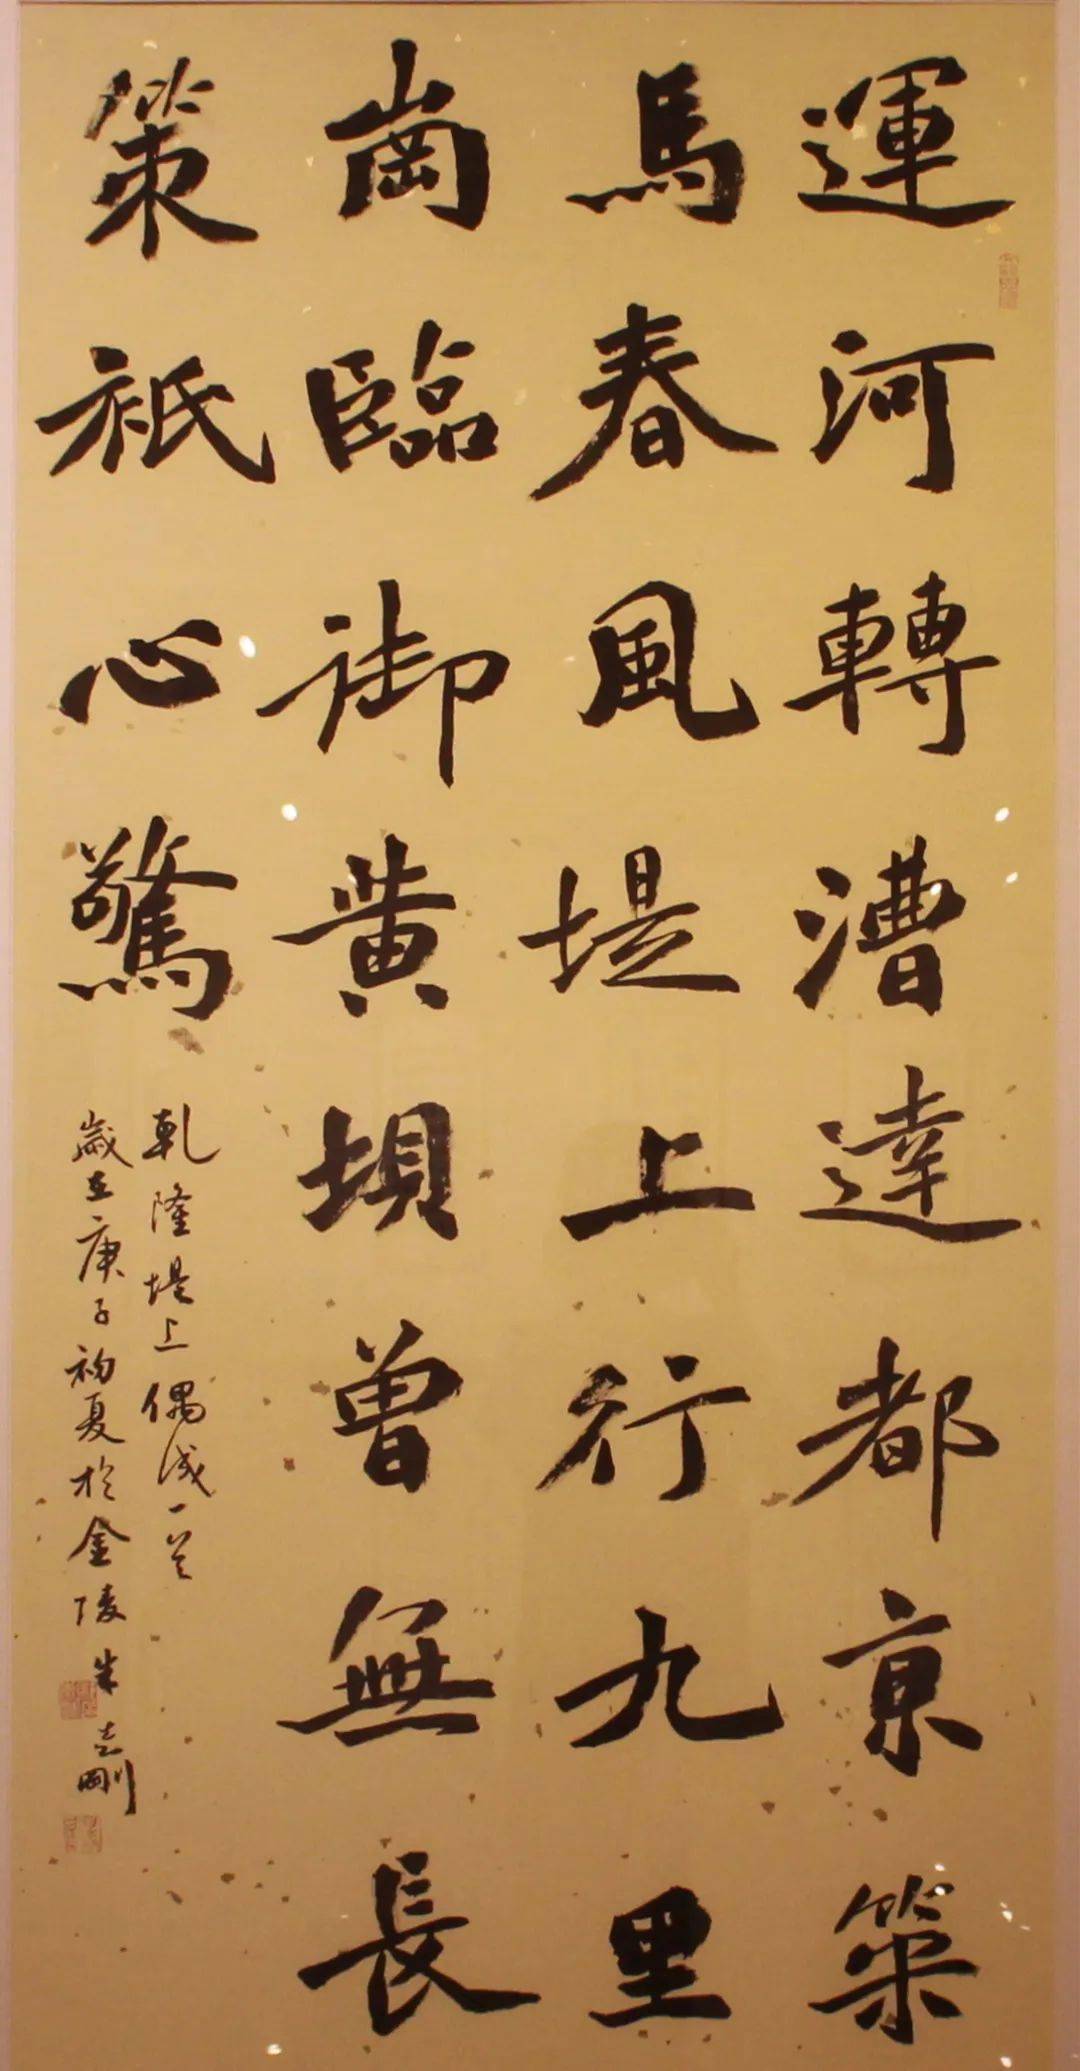 運河轉漕達都京策
馬春風堤上行九里
崗臨御黃壩曾無長
策祇心驚
乾隆堤上偶成一首
歲在庚子初夏於金陵朱志剛